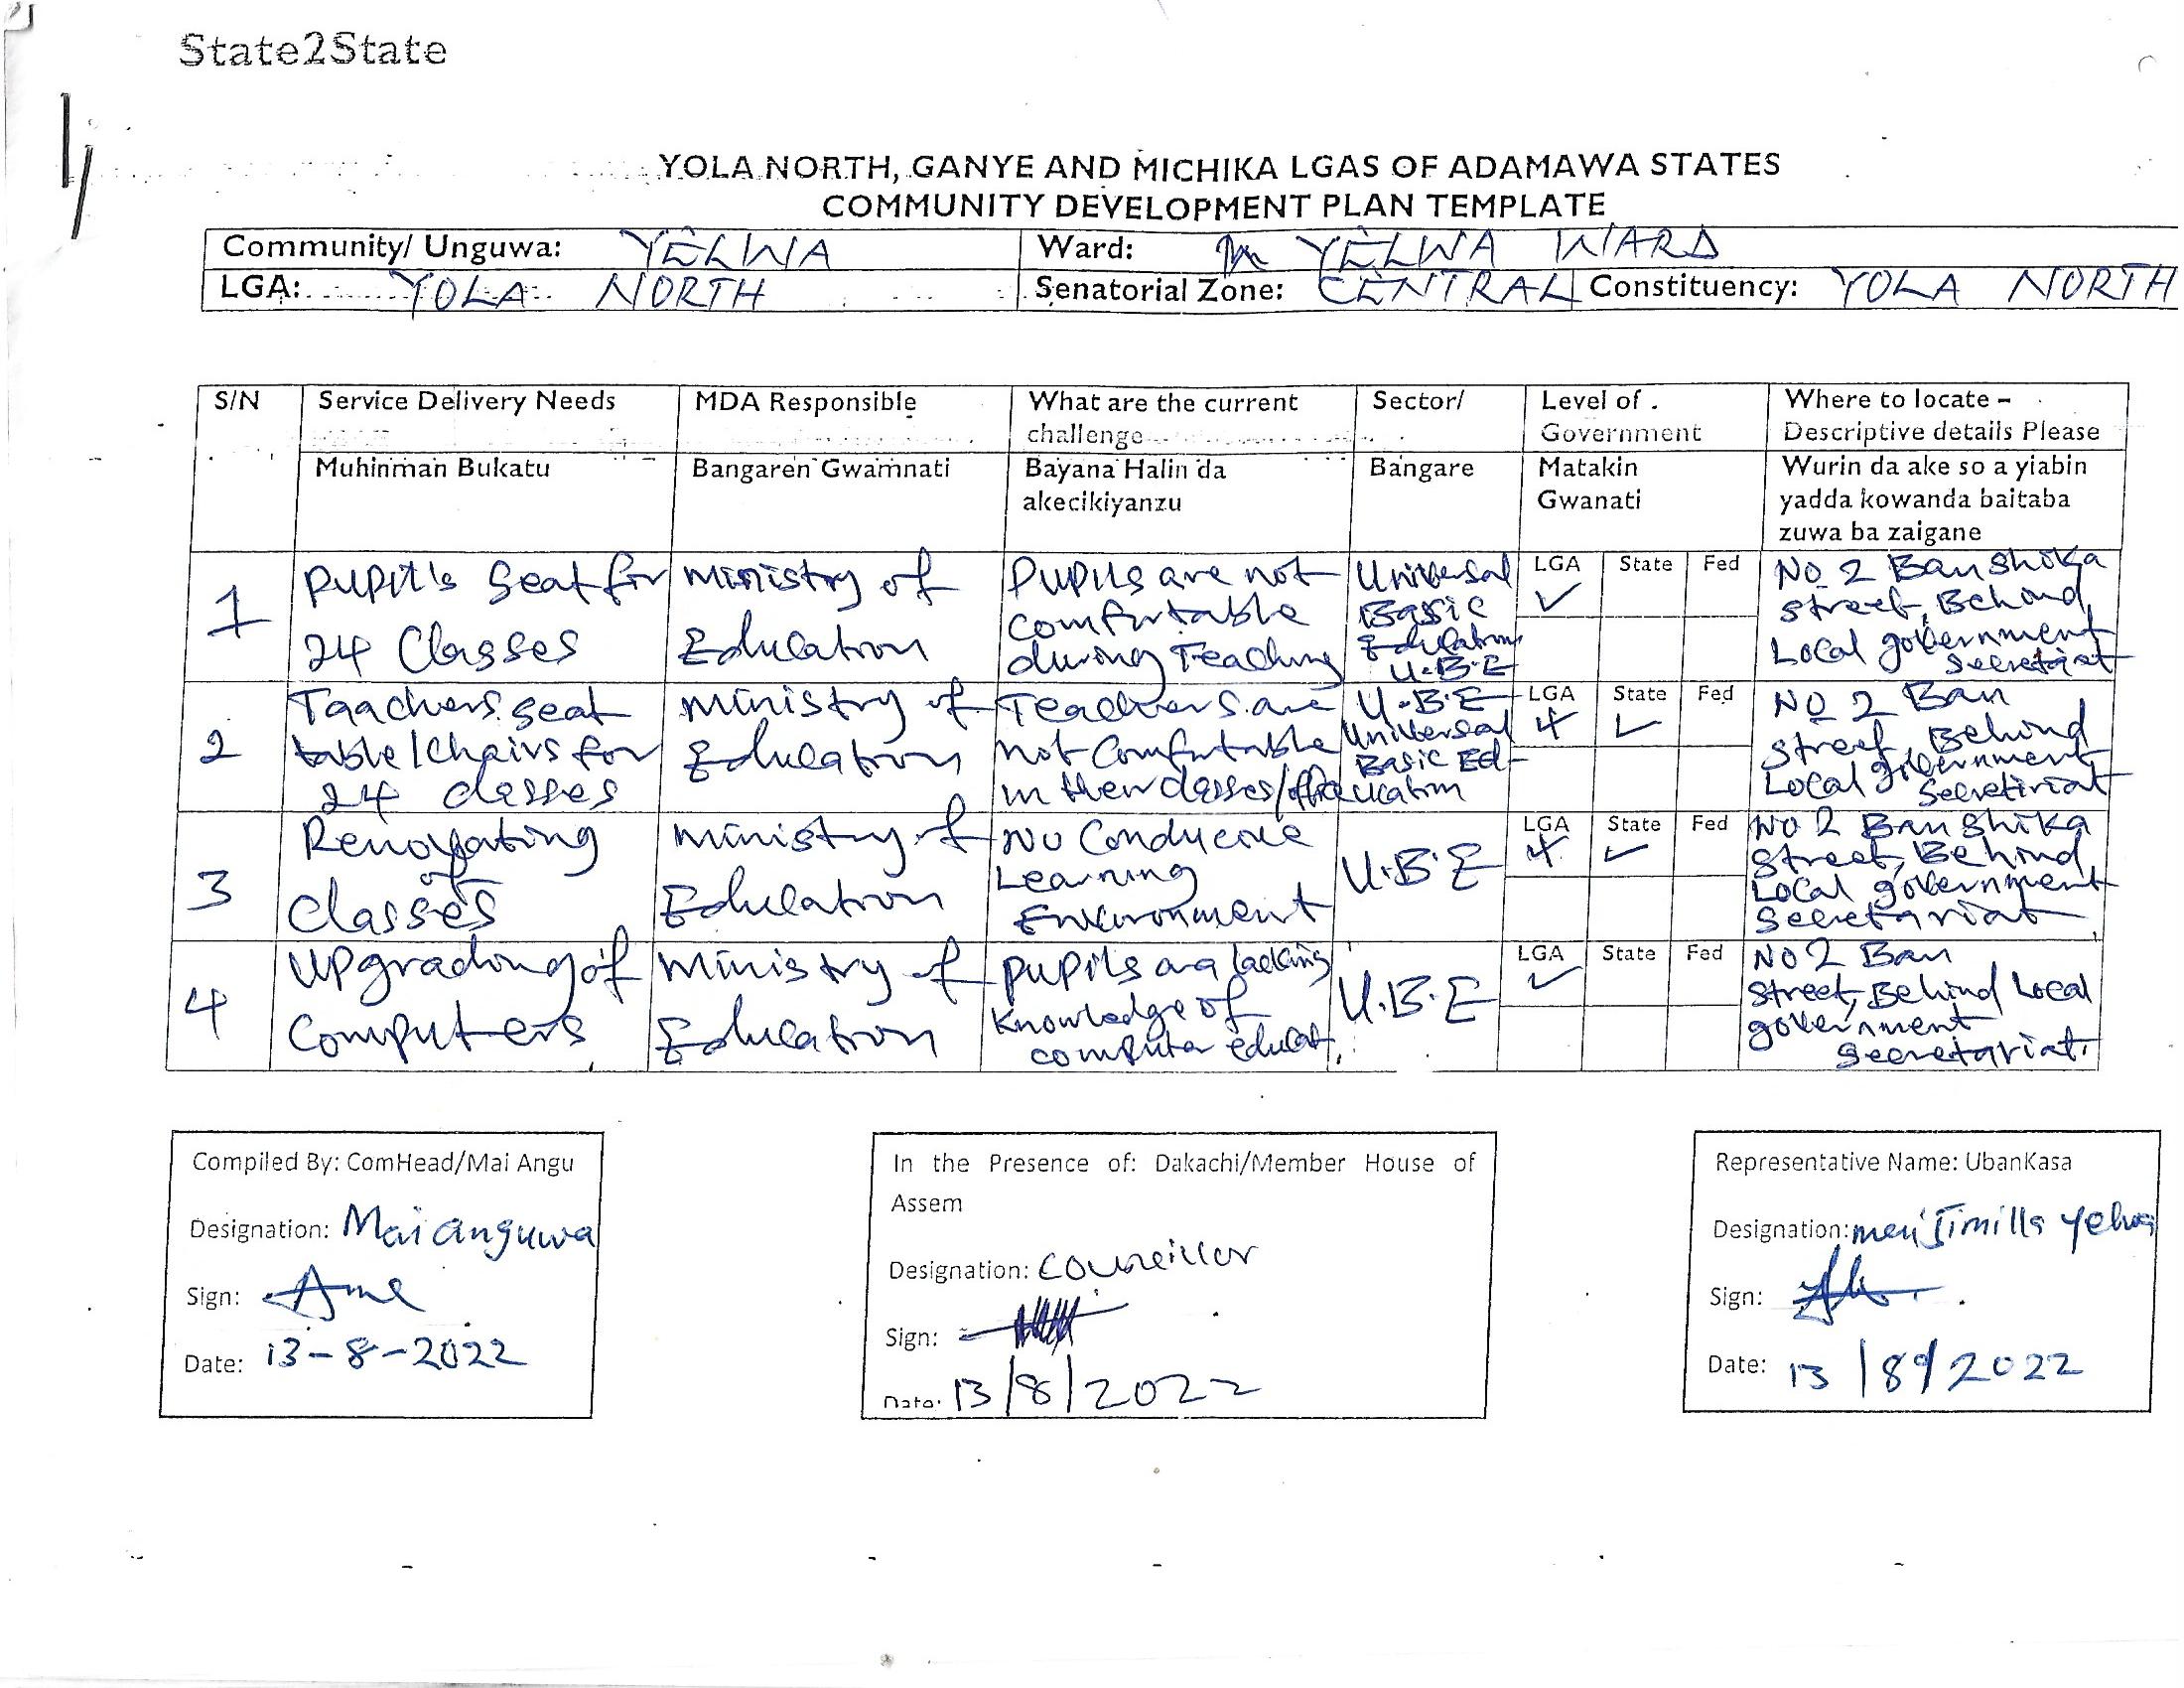 State2State
YOLA NORTH, GANYE AND MICHIKA LGAS OF ADAMAWA STATES
COMMUNITY DEVELOPMENT PLAN TEMPLATE
Community/ Unguwa: YELWA Ward: YELWA WARD
LGA: YOLA NORTH Senatorial Zone: CENTRAL Constituency: YOLA NORTH
S/N Service Delivery Needs MDA Responsible What are the current challenge Sector/ Level of Government Where to locate – Descriptive details Please
Muhinman Bukatu Bangaren Gwamnati Bayana Halin da akecikiyanzu Bangare Matakin Gwanati Wurin da ake so a yiabin yadda kowanda baitaba zuwa ba zaigane
1 Pupil's Seat for 24 Classes Ministry of Education Pupils are not comfortable during Teaching Universal Basic Education U.B.E LGA ✓ State Fed No 2 Banshika street, Behind Local government secretariat
2 Taachers seat table/chairs for 24 classes Ministry of Education Teachers are not Comfortable in their classes/office U.B.E Universal Basic Education LGA State ✓ Fed NO 2 Ban street, Behind Local government Secretiriat
3 Renovating of classes Ministry of Education No Conducive Learning Environment U.B.E LGA State ✓ Fed NO 2 Banshika street, Behind Local government secretariat
4 Upgrading of Computers Ministry of Education pupils are lacking knowledge of computer educat. U.B.E LGA ✓ State Fed NO 2 Ban street, Behind Local government secretariat.
Compiled By: ComHead/Mai Angu
Designation: Mai anguwa
Sign:
Date: 13-8-2022
In the Presence of: Dakachi/Member House of
Assem
Designation: Councillor
Sign:
Date: 13/8/2022
Representative Name: UbanKasa
Designation: meri Jimilla Yelwa
Sign:
Date: 13/8/2022